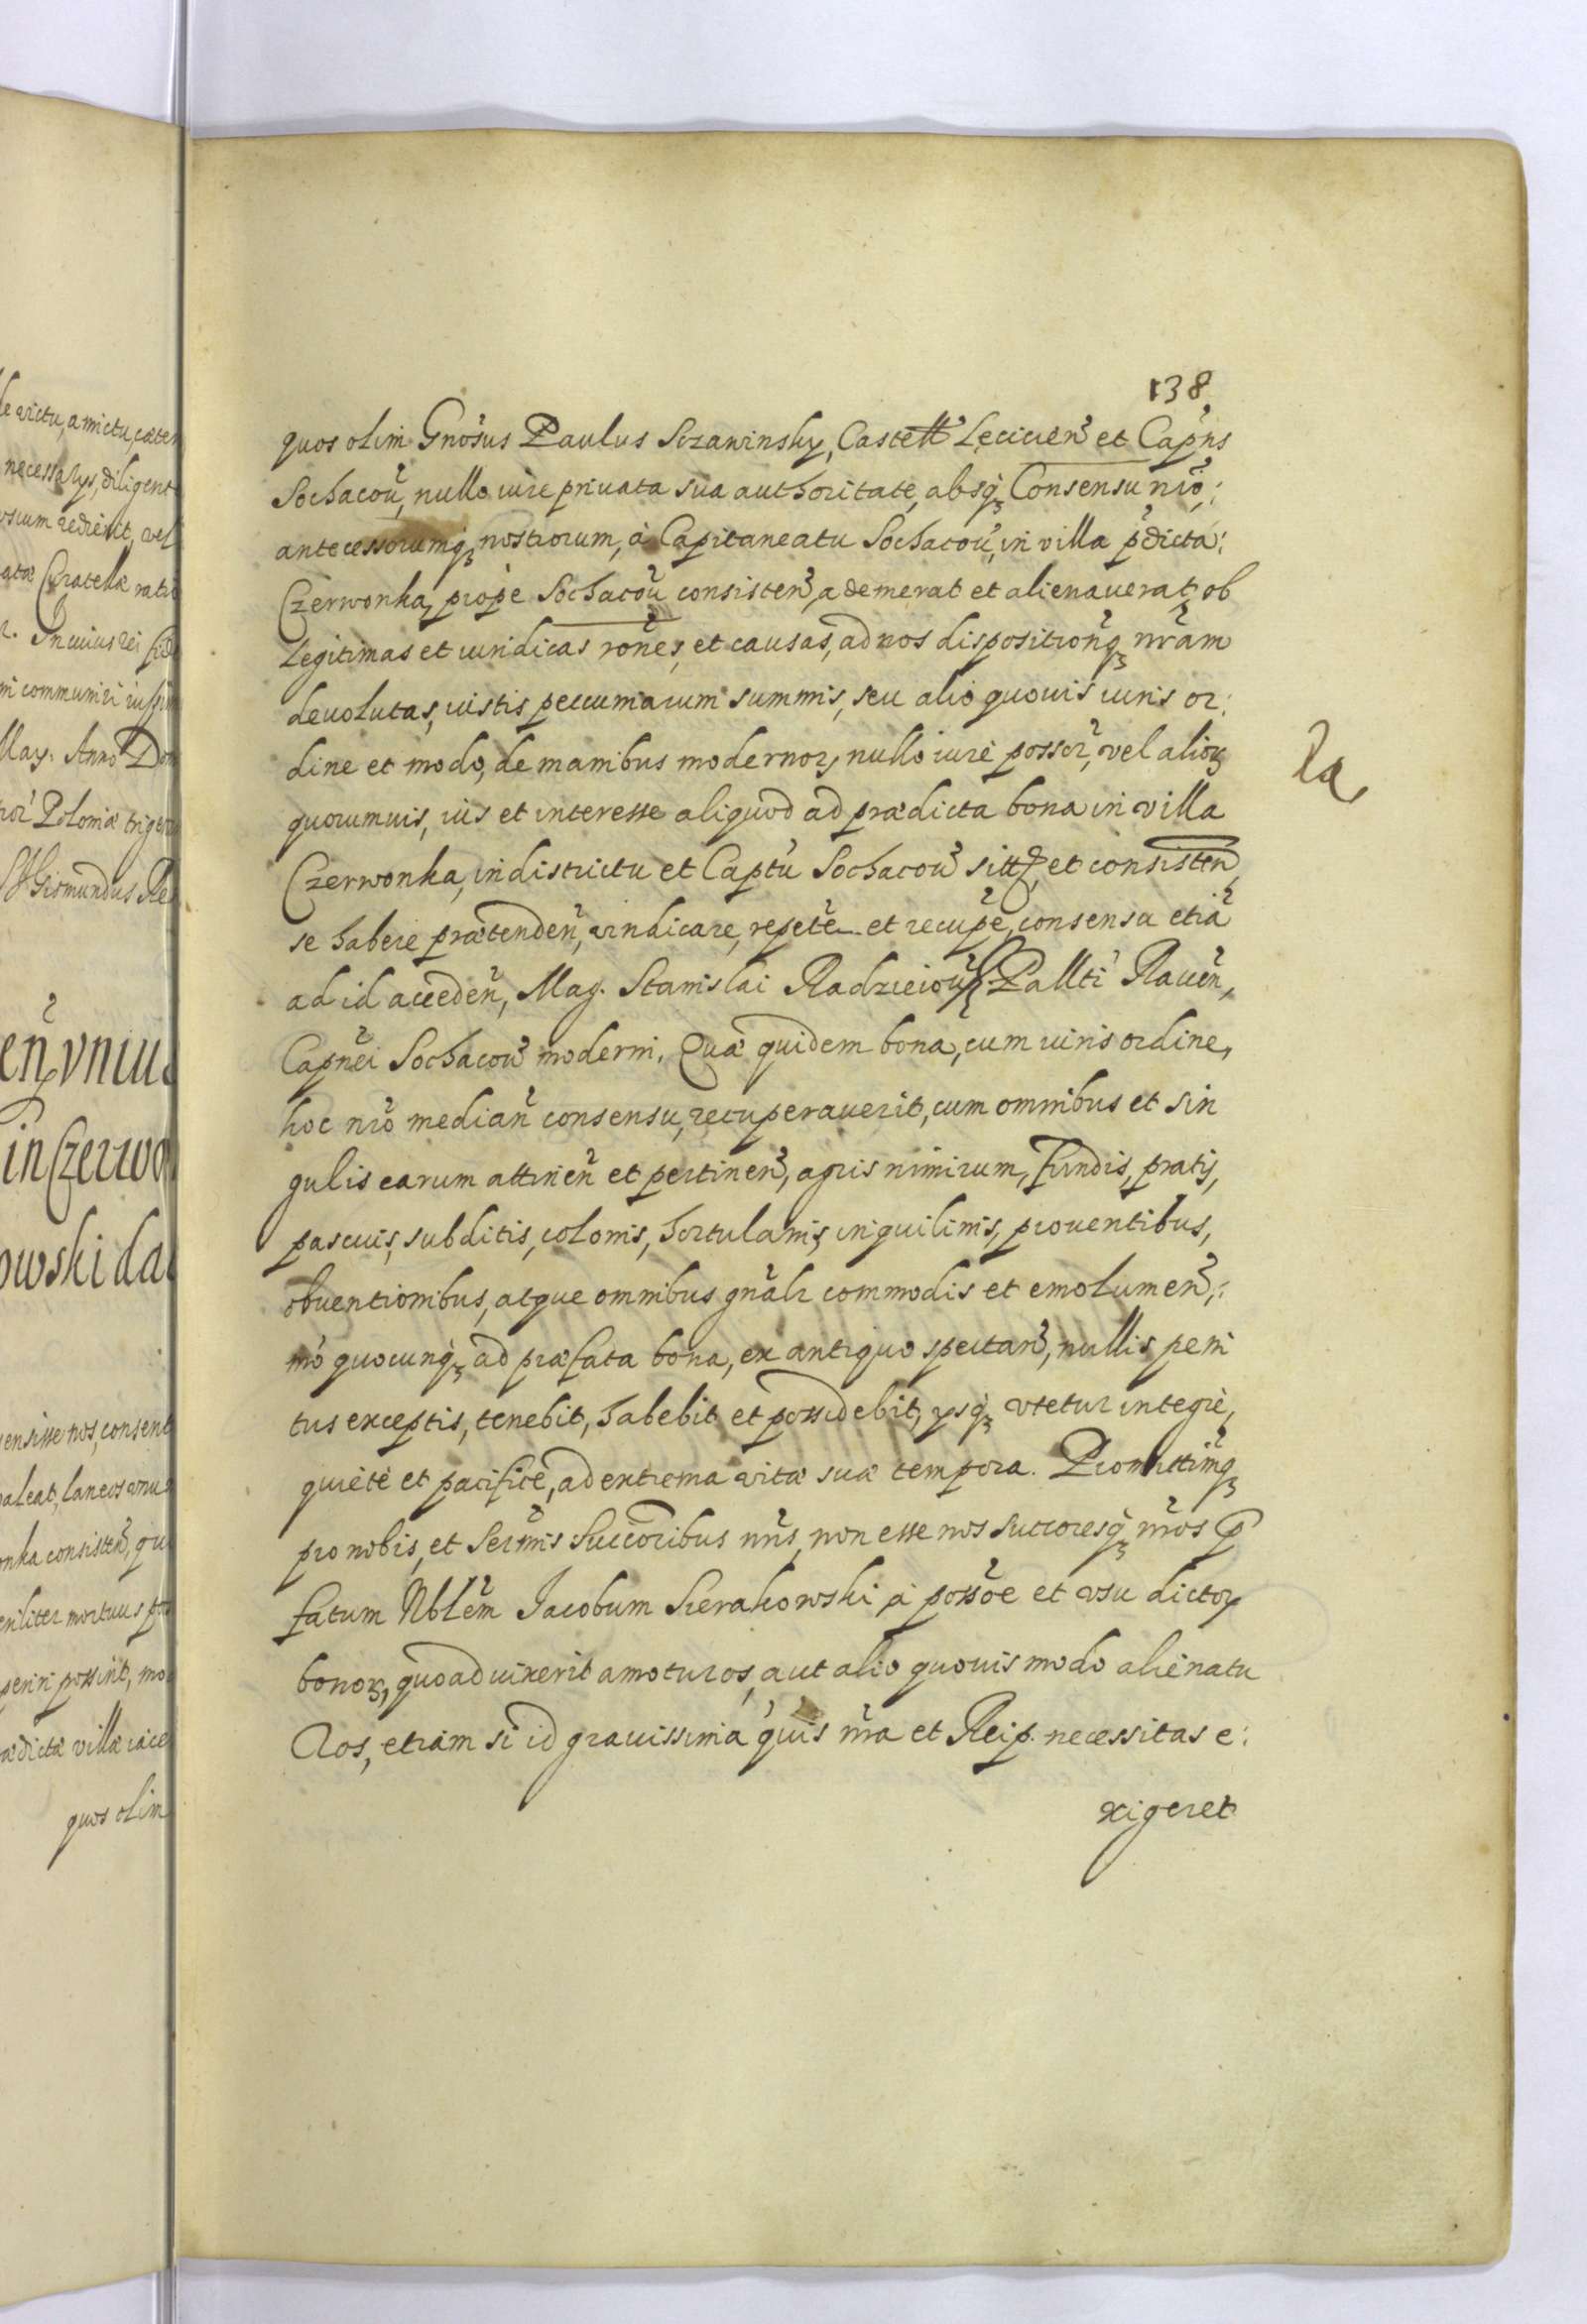 138
quos olim Gnosus Paulus Szawinsky, Castell Lecicien et Capns
Sochacou, nullo iure priuata sua authoritate, absq Consensu nro,
antecessorumq nostrorum, à Capitaneatu Sochacou, in villa pdicta
Czerwonka, prope Sochacou consisten, ademerat et alienauerat, ob
legitimas et iuridicas rones, et causas, ad nos dispositionq nram
deuolutas, iustis peccuniarum summis, seu alio quouis iuris or:
dine et modo, de manibus modernor, nullo iure possor, vel alior
quorumuis, ius et interesse aliquod ad prædicta bona in villa
Czerwonka, in districtu et Captu Sochacou sitt, et consisten,
se habere prætenden, vindicare, repete et recupe, consensu etiã
ad id acceden, Mag. Stanislai Radzieiou Pallti Rauen,
Capnei Sochacou moderni. Quæ quidem bona, cum iuris ordine,
hoc nro median consensu, recuperauerit, cum omnibus et sin
gulis earum attinen et pertinen, agris nimirum, fundis, pratis,
pascuis, subditis, colonis, hortulanis, inquilinis, prouentibus,
obuentionibus, atque omnibus gnalr commodis et emolumen,:
mo quocunq ad præfata bona, ex antiquo spectan, nullis peni
tus exceptis, tenebit, habebit et possidebit, ysq vtetur integrè,
quietè et pacificè, ad extrema vitæ suæ tempora. Promittimq
pro nobis, et Sermis Succoribus nris, non esse nos Succoresq nros p
fatum Nblem Jacobum Sierakowski à possoe et vsu dictor
bonor, quoad uixerit amoturos, aut alio quouis modo alienatu
Ros, etiam si id grauissima quis nra et Reip. necessitas e:
xigeret
le victu, amictu, cæte
necessarys, diligent
In cuius rei fid
ni communiri iussi
May. Anno Dom
Poloniæ trige
Sigismundus Re
en, vniu
in Czerwo
owski da
ensisse nos, consent
aleat, laneos vnu
onka consisten, qu
eriliter mortuus
periri possint, mo
ædictæ villæ iace
quos olim